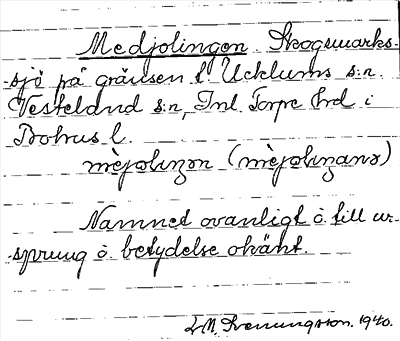 Medjolingen Skogsmarks-
sjö på gränsen t. Ucklums s:n.
Vesteland s:n, Inl. Torpe hd i
Bohus l.
mèjolıŋən (mèjolıŋanə)
Namnet ovanligt o. till ur-
sprung o. betydelse okänt.
1940.